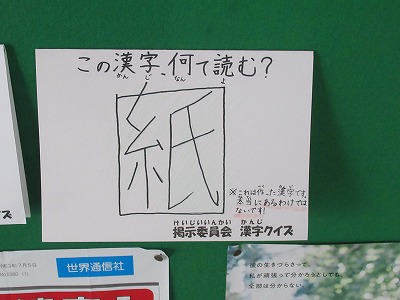 この漢字、何て読む?
かん じ なん よ
紙
※これは作った漢字です。
本当にあるわけでは
ないです!
けいじいいんかい かんじ
掲示委員会 漢字クイズ
イズ
3年7月5日
世界通信社
後の生きづらさって、
私が頑張って分かろうとしても、
全部は分からない。